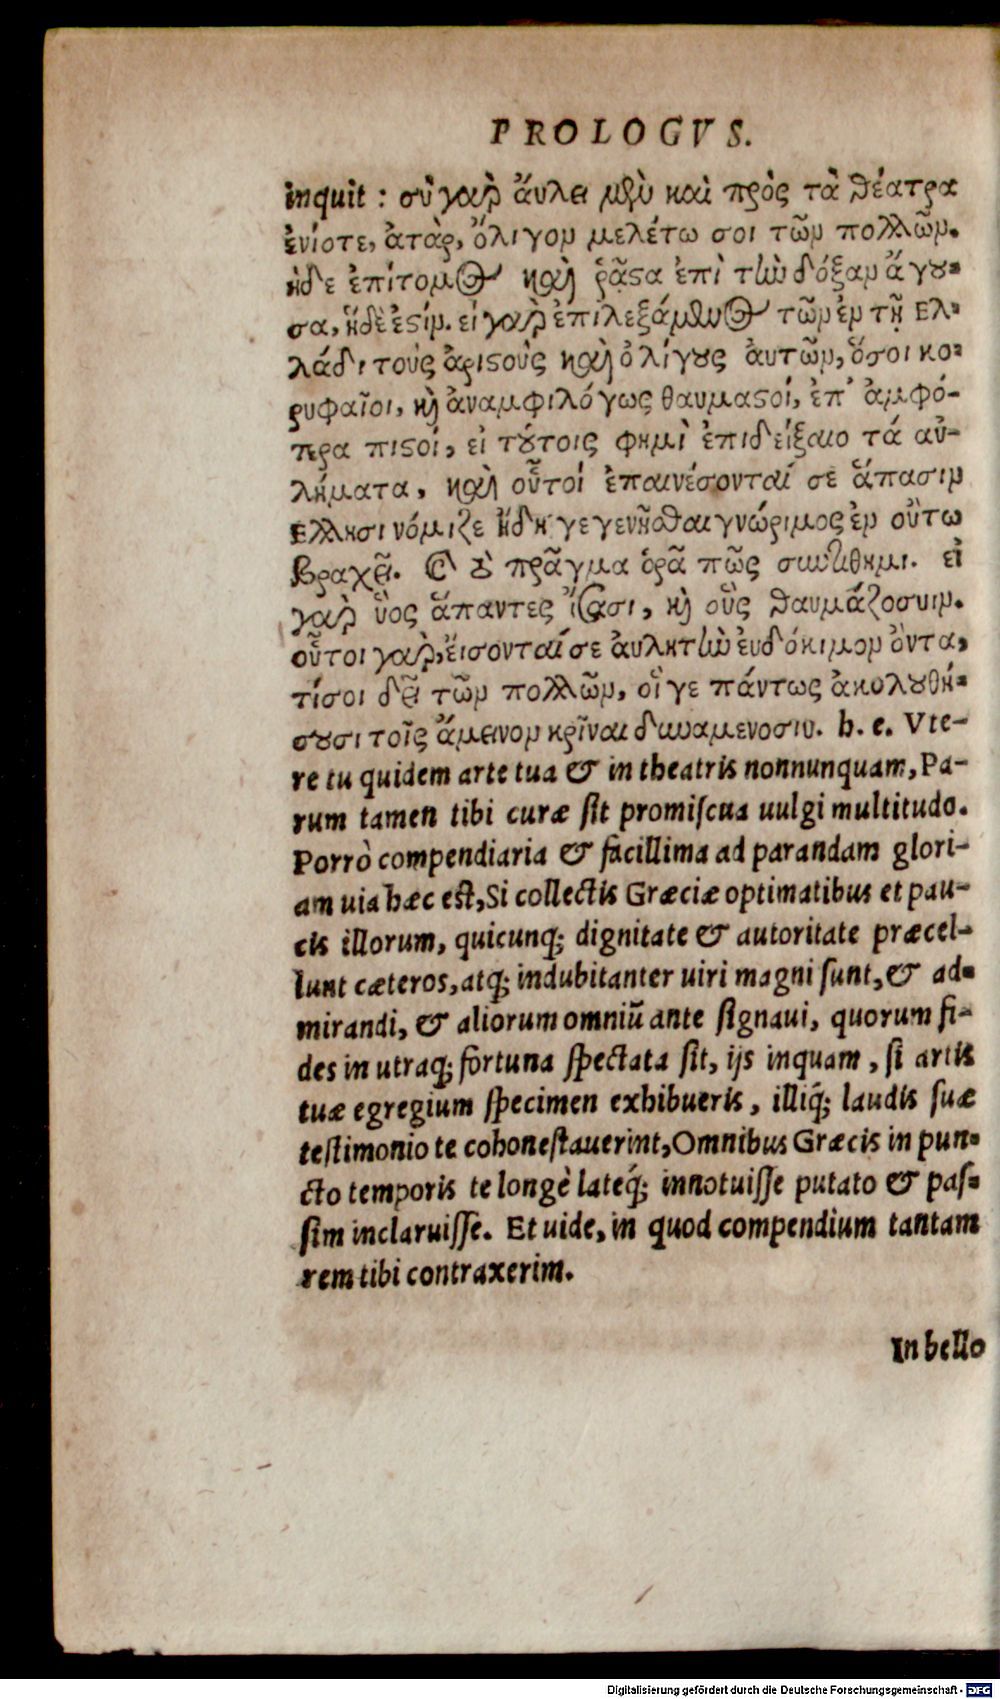 PROLOGVS.
inquit : σὺ γαρ ἄυλει μὲν καὶ πρὸς τὰ θέατρα
ἐνίοτε, ἀτὰρ, ὄλιγον μελέτω σοι τῶν πολλῶν.
ἡδε ἐπίτομος καὶ ῥᾷστα ἐπὶ τὴν δόξαν ἄγου-
σα, ἥδὲ ἐστίν. εἰ γαρ ἐπιλεξάμενος τῶν ἐν τῇ Ελ-
λάδι τοὺς ἀριστοὺς καὶ ὀλίγους ἀυτῶν, ὅσοι κο-
ρυφαῖοι, καὶ ἀναμφιλόγως θαυμαστοί, ἐπ' ἀμφό-
τερα πιστοί, εἰ τούτοις φημὶ ἐπιδείξαιο τά αὐ-
λήματα, καὶ οὗτοί ἐπαινέσονταί σε ἅπασιν
Ελλησι νόμιζε ἤδη γεγενῆσθαι γνώριμος ἐν οὕτω
βραχεῖ. Cὺ πρᾶγμα ὁρᾶ πῶς συντίθημι. εἰ
γαρ ὓος ἅπαντες ἴσασι, καὶ οὓς θαυμάζοσυιν.
οὗτοι γαρ, ἔισονταί σε ἀυλητὴν ἐυδόκιμον ὄντα,
τίσοι δεῖ τῶν πολλῶν, οἵ γε πάντως ἀκολουθή-
σουσι τοῖς ἄμεινον κρῖναι δυναμενοσιν. h. e. Vte-
re tu quidem arte tua & in theatris nonnunquam, Pa-
rum tamen tibi curæ sit promiscua uulgi multitudo.
Porrò compendiaria & facillima ad parandam glori-
am uia hæc est, Si collectis Græciæ optimatibus et pau-
cis illorum, quicunq; dignitate & autoritate præcel-
lunt cæteros, atq; indubitanter uiri magni sunt, & ad-
mirandi, & aliorum omniũ ante signaui, quorum fi-
des in utraq; fortuna spectata sit, ijs inquam, si artis
tuæ egregium specimen exhibueris, illiq́; laudis suæ
testimonio te cohonestauerint, Omnibus Græcis in pun-
cto temporis te longè lateq́; innotuisse putato & pas-
sim inclaruisse. Et uide, in quod compendium tantam
rem tibi contraxerim.
In bello
Digitalisierung gefördert durch die Deutsche Forschungsgemeinschaft - DFG